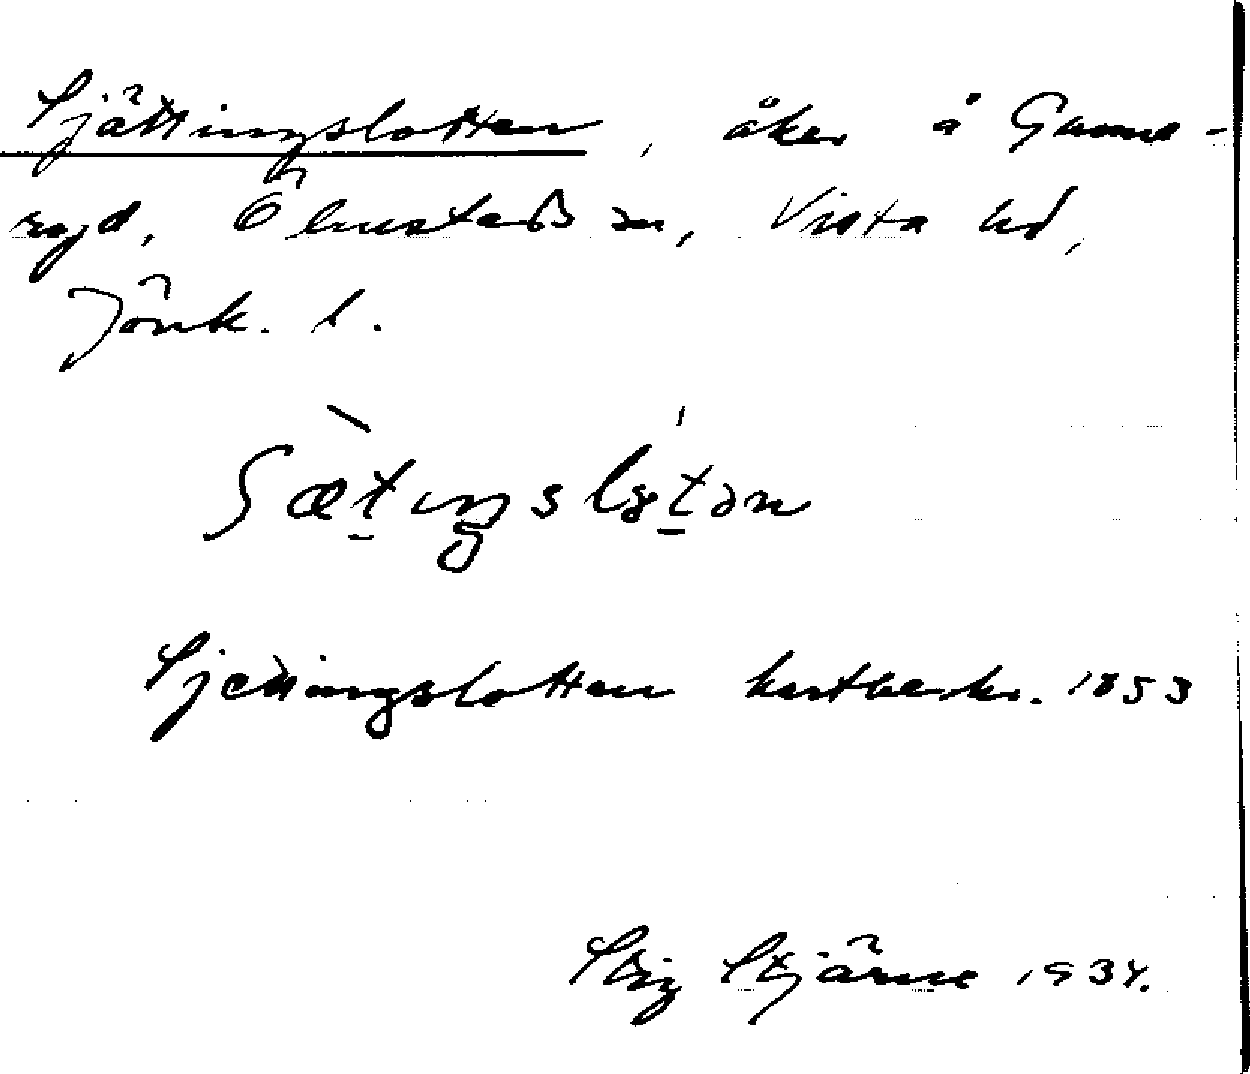 Sjättingslotten, åker å Gamme-
ryd, Ölmstads sn, Vista hd,
Jönk. l.
Sjettingslotten kartbeskr. 1853
Stig Stjärne 1934.